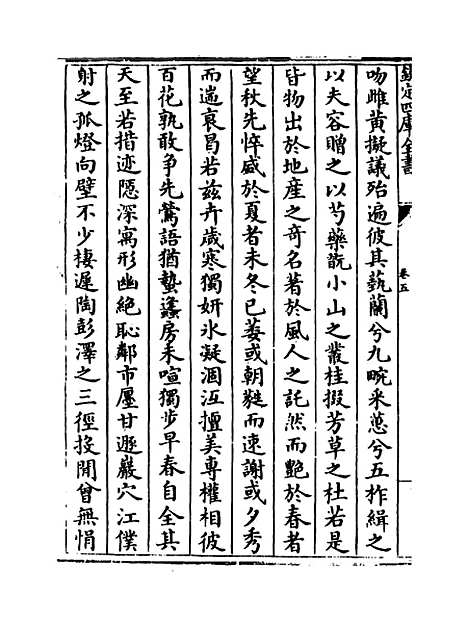 欽定四庫全書
卷五
吻雌黄擬議殆遍彼其藝蘭兮九畹采蕙兮五柞緝之
以夫容贈之以芍藥翫小山之叢桂掇芳草之杜若是
皆物出於地産之奇名著於風人之託然而艶於春者
望秋先悴盛於夏者未冬已萎或朝鞋而速謝或夕秀
而遄衰曷若兹卉歳寒獨妍氷凝涸冱擅美專權相彼
百花孰敢争先鶯語猶蟄蠭房未喧獨步早春自全其
天至若措迹隠深寓形幽絶恥鄰市㕓甘遯巖穴江僕
射之孤燈向壁不少棲遲陶彭澤之三徑投閒曾無悁